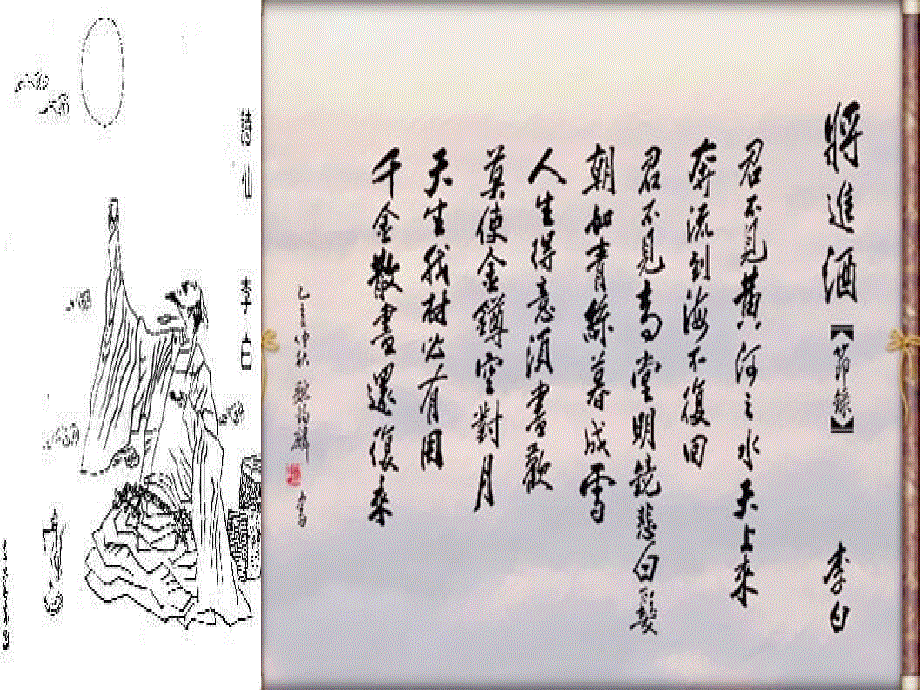 將進酒【節錄】 李白
君不見黃河之水天上來
奔流到海不復回
君不見高堂明鏡悲白髮
朝如青絲暮成雪
人生得意須盡歡
莫使金鐏空對月
天生我材必有用
千金散盡還復來
乙亥仲秋 書
詩仙 李白